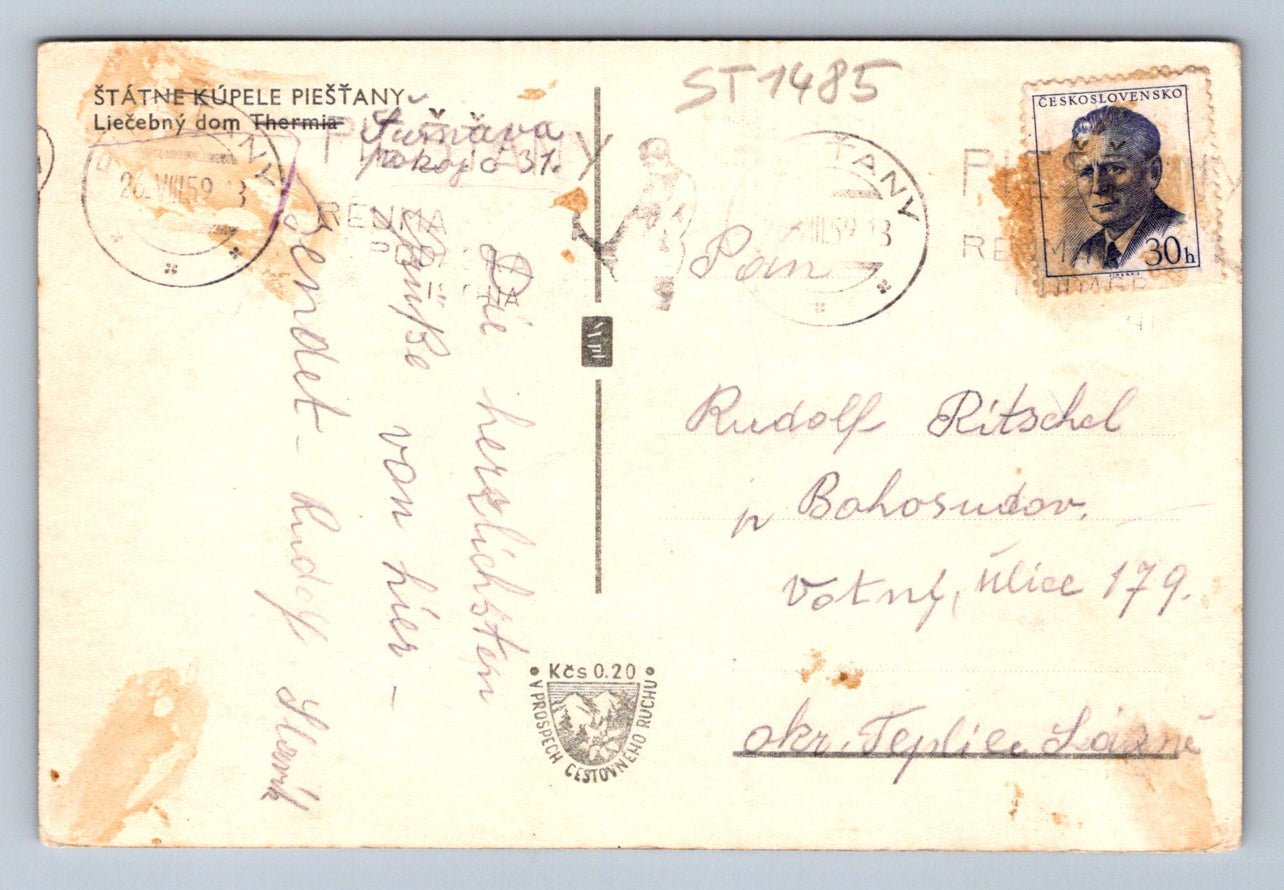 ŠTÁTNE KÚPELE PIEŠŤANY
Liečebný dom Thermia
pokoj č 31.
ST 1485
ČESKOSLOVENSKO
30h
26.VIII.59 13
ŤANY
VIII.59 13
Die herzlichsten
Grüße von hier –
sendet – Rudolf
Pan
Rudolf Ritschel
p Bohosudov.
ulice 179.
okr. Teplice Lázně
Kčs 0.20
V PROSPECH CESTOVNÉHO RUCHU